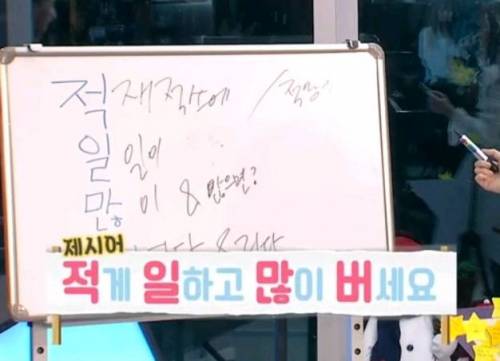 적재적소에 / 적당
일 일이
많이 & 많으면?
제시어
적게 일하고 많이 버세요